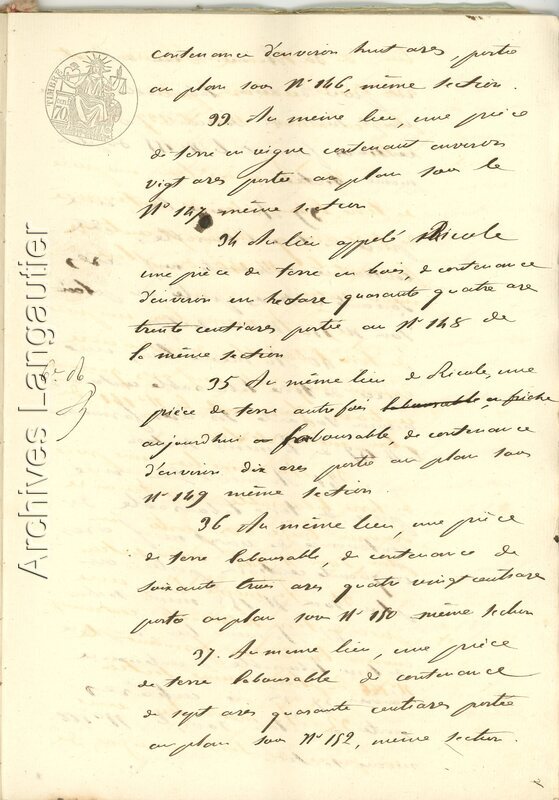 TIMBRE
70
contenance d'environ huit ares, portée
au plan sous N° 146, même section.
33. Au même lieu, une pièce
de terre en vigne contenant environ
vigt ares portée au plan sous le
N° 147 même section
34 Au lieu appelé Ricole
une pièce de terre en bois, de contenance
d'environ un hectare quarante quatre are
trente centiares portée au N° 148 de
la même section
35 Au même lieu de Ricole, une
pièce de terre autrefois labourable, en friche
aujourdhui labourable, de contenance
d'environ dix ares portée au plan sous
N° 149 même section.
36 Au même lieu, une pièce
de terre labourable, de contenance de
soixante trois ares quatre vingt centiares
portée au plan sous N° 150 même section
37. Au même lieu, une pièce
de terre labourable de contenance
de sept ares quarante centiares portée
au plan sous N° 152, même section.
Archives Langautier